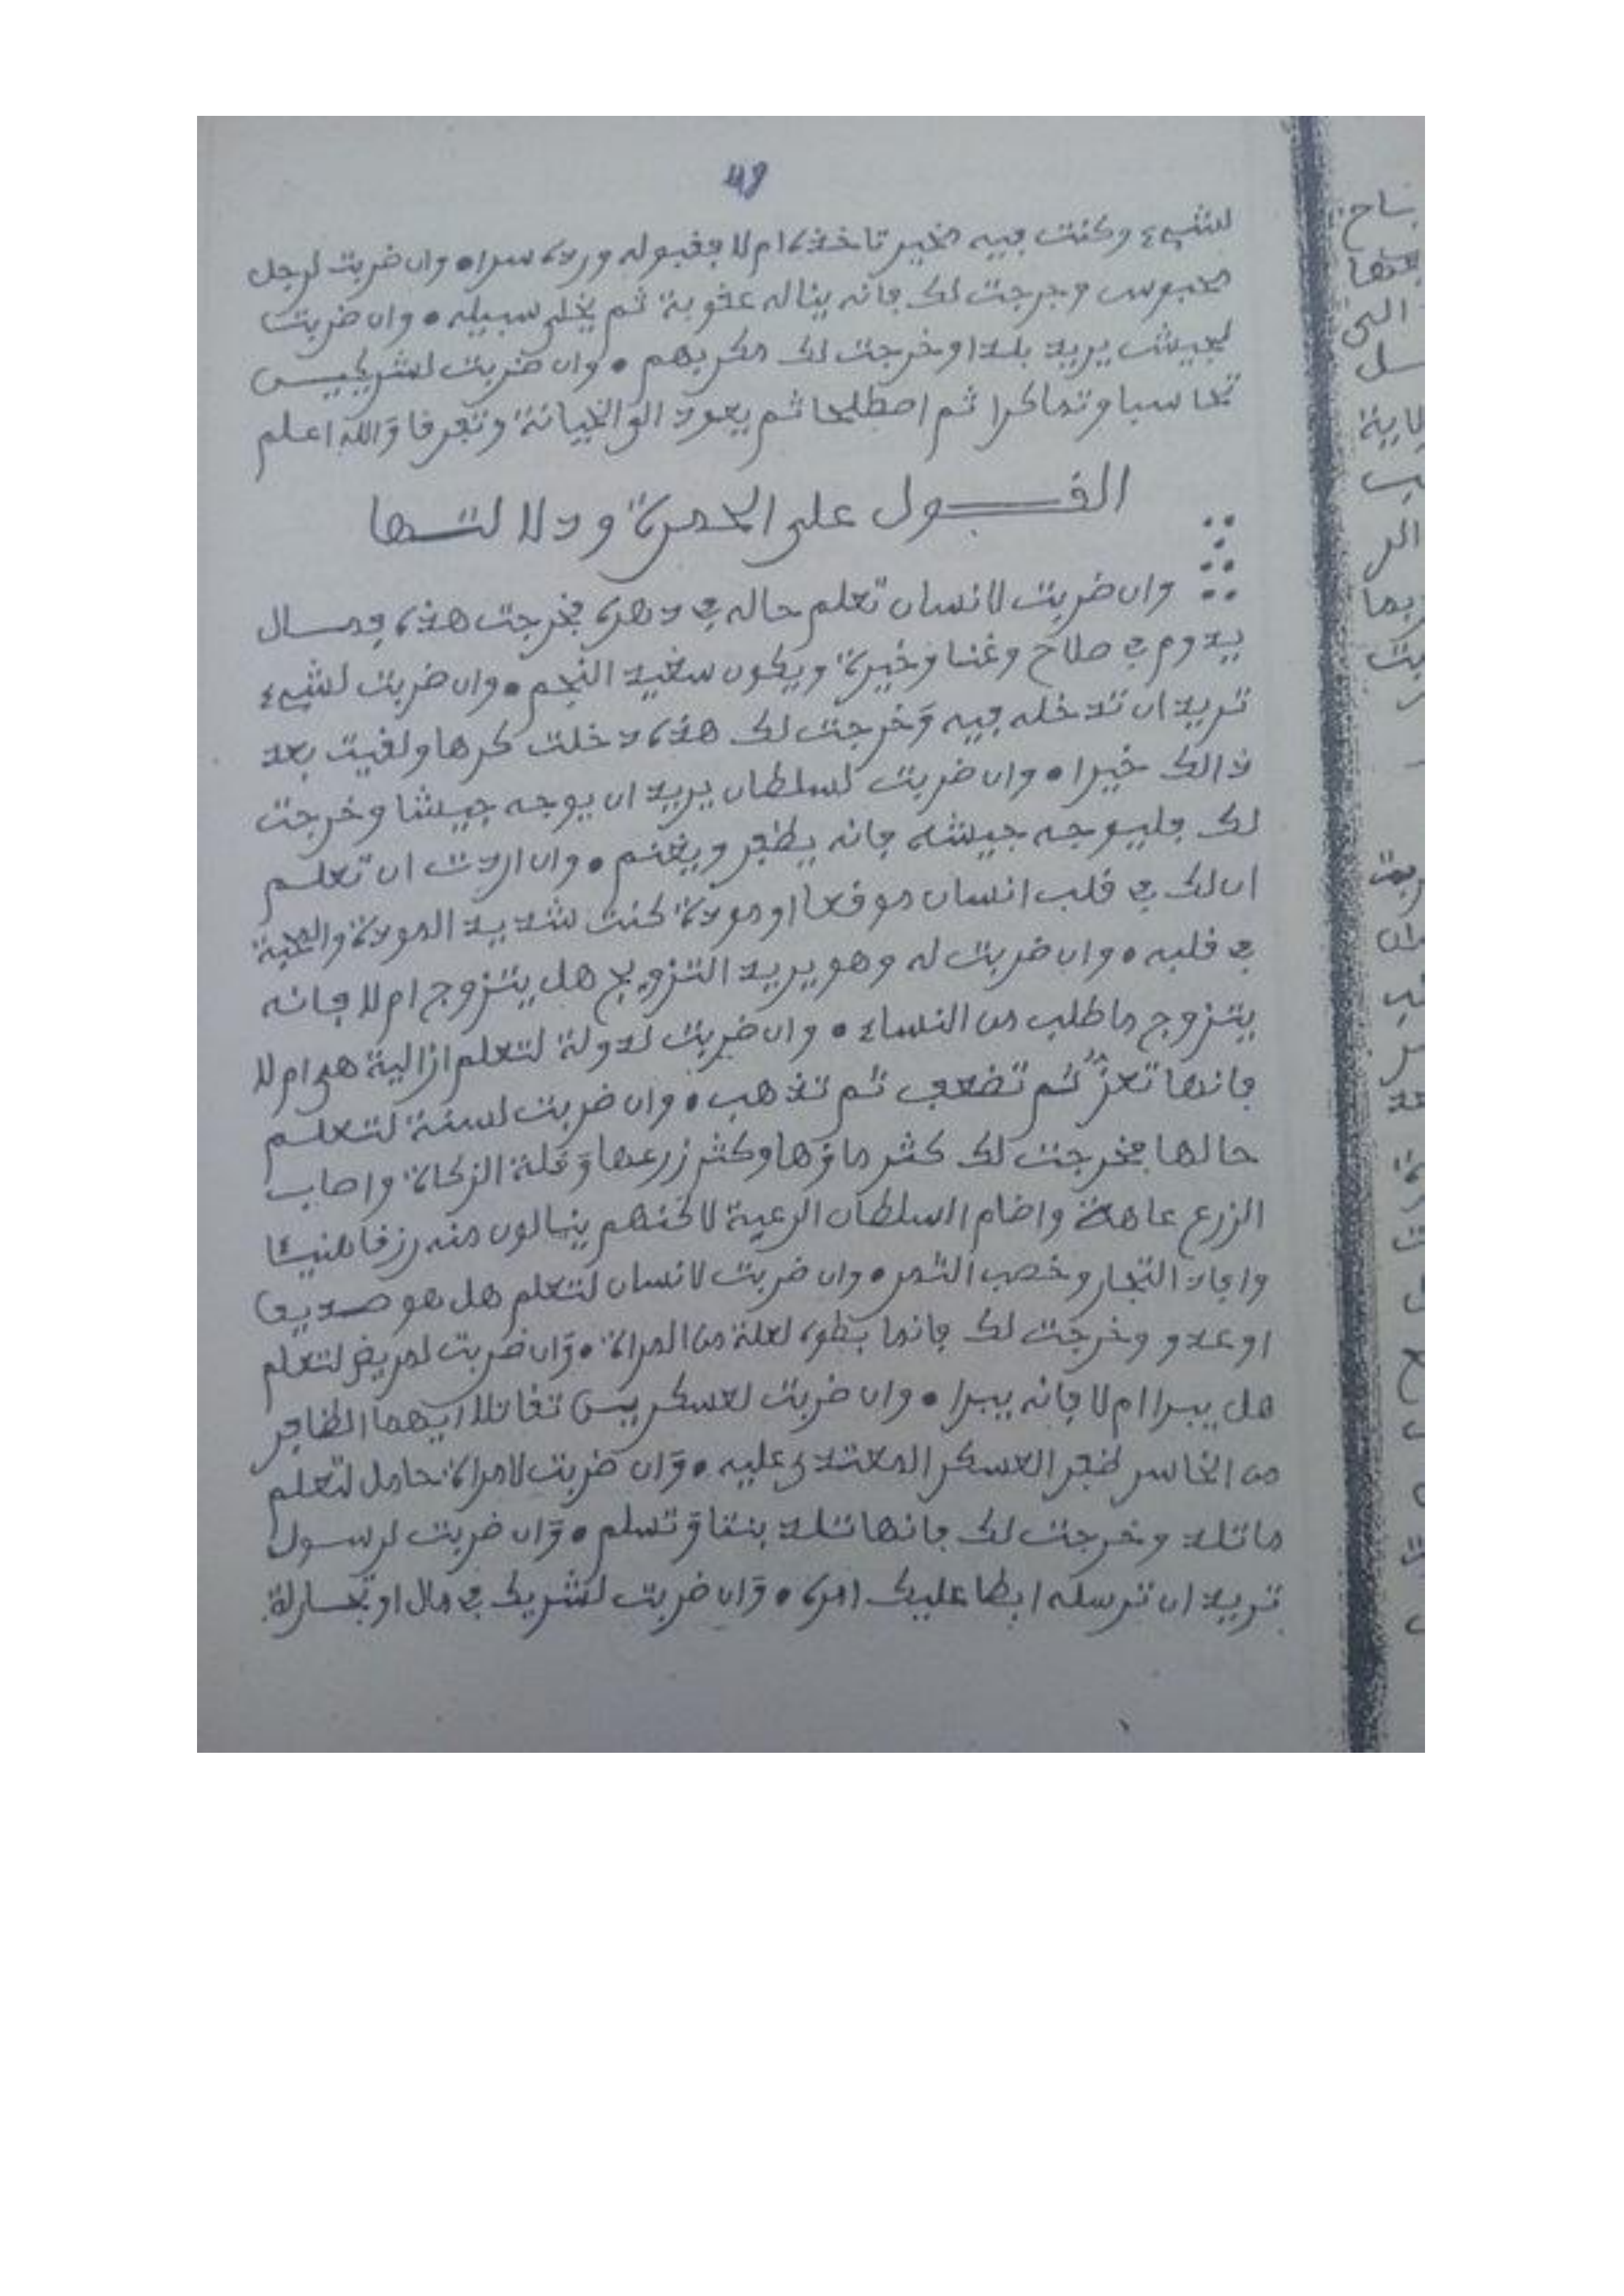 49
لشيء وكنت فيه مخير تاخذه ام لا فقبوله ورده سواء • وان ضربت لرجل
محبوس وخرجت لك فانه يناله عقوبة ثم يخلى سبيله • وان ضربت
لجيش يريد بلدا وخرجت لك مكر بهم • وان ضربت لشريكيـــن
تحاسبا وتماكرا ثم اصطلحا ثم يعود الى الخيانة وتفرقا والله اعلم
القـــول على الحمرة ودلا لتـــها
وان ضربت لانسان تعلم حاله في دهره فخرجت هذه
يدوم في صلاح وغنا وخيرة ويكون سعيد النجم • وان ضربت لشيء
تريد ان تدخله فيه وخرجت لك هذه دخلت كرها ولقيت بعد
ذالك خيرا • وان ضربت لسلطان يريد ان يوجه جيشا وخرجت
لك فليوجه جيشه فانه يظفر ويغنم • وان اردت ان تعلم
ان لك في قلب انسان موقعا او مودة كنت شديد المودة والمحبة
في قلبه • وان ضربت له وهو يريد التزويج هل يتزوج ام لا فانه
يتزوج ما طلب من النساء • وان ضربت لدولة لتعلم ازالية هى ام لا
فانها تعز ثم تضعف ثم تذهب • وان ضربت لسنة لتعلم
حالها فخرجت لك كثر ماؤها وكثر زرعها وقلة الزكاة واصاب
الزرع عاهة واضام السلطان الرعية لاكنهم ينالون منه رزقا هنيئا
وافاد التجار وخصب الثمر • وان ضربت لانسان لتعلم هل هو صديق
او عدو وخرجت لك فانما لعلة من المراة • وان ضربت لمريض لتعلم
هل يبرا ام لا فانه يبرا • وان ضربت لعسكريين تقاتلا ايهما الظافر
من الخاسر ظفر العسكر المعتدى عليه • وان ضربت لامراة حامل لتعلم
ما تلد وخرجت لك فانها تلد بنتا وتسلم • وان ضربت لرسول
تريد ان ترسله ابطا عليك امره • وان ضربت لشريك في مال او تجـــارة